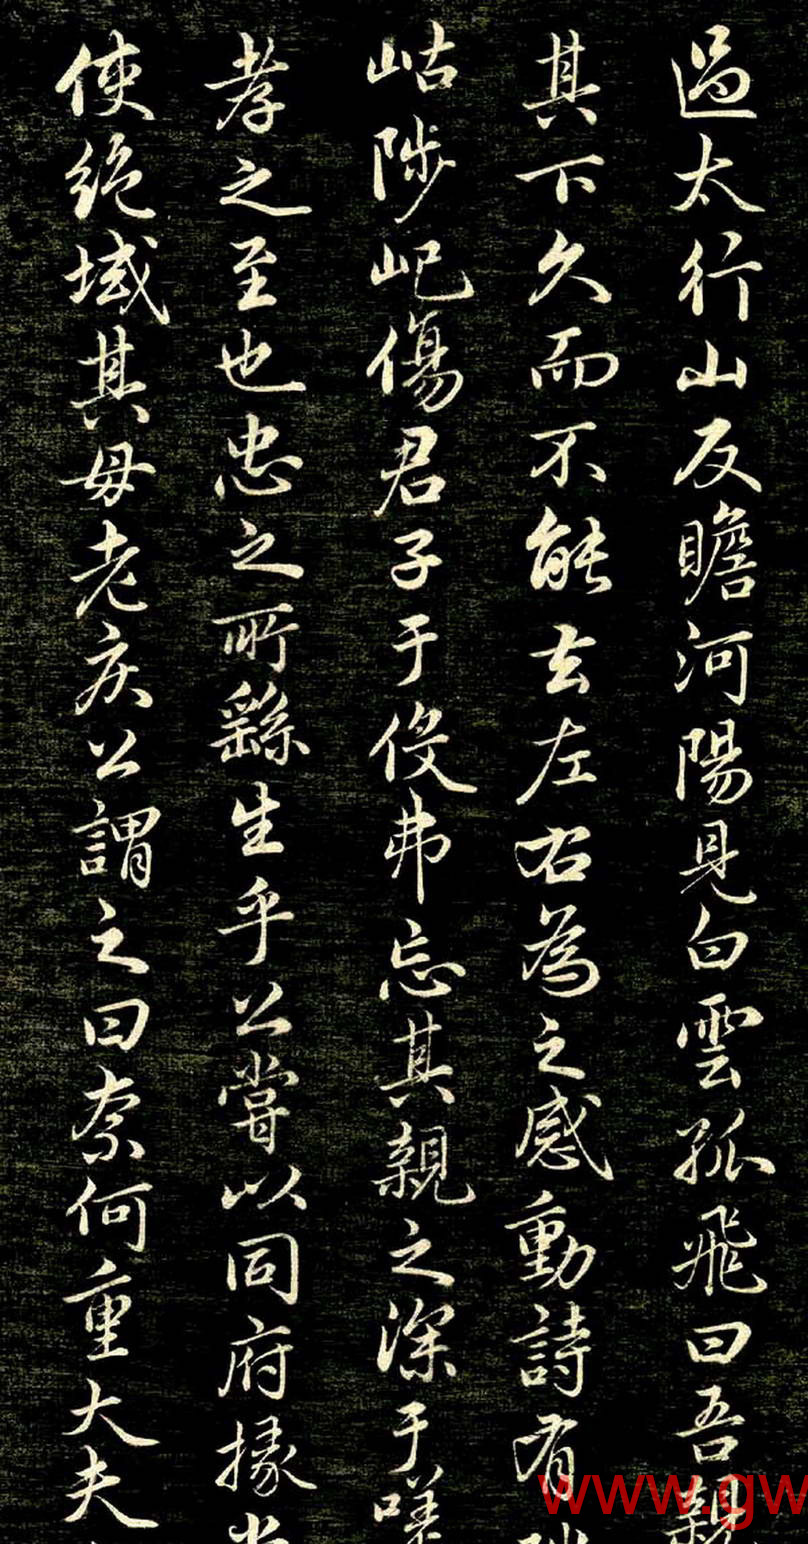 過太行山反瞻河陽見白雲孤飛曰吾親
其下久而不能去左右為之感動詩有
岵陟屺傷君子于役弗忘其親之深于嗟
孝之至也忠之所繇生乎公嘗以同府掾
使絕域其母老疾公謂之曰奈何重大夫
www.gw